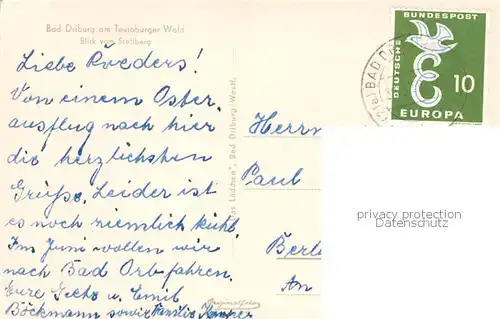 Bad Driburg am Teutoburger Wald
Blick vom Stellberg
Liebe Roeders!
Von einem Oster-
ausflug nach hier
die herzlichsten
Grüße. Leider ist
es noch ziemlich kühl.
Im Juni wollen wir
nach Bad Orb fahren.
Eure u. Emil
Böckmann sowie Familie
Bad Driburg/Westf.
Herrn
Paul
Berlin
An
BAD
DEUTSCHE
BUNDESPOST
10
EUROPA
privacy protection
Datenschutz